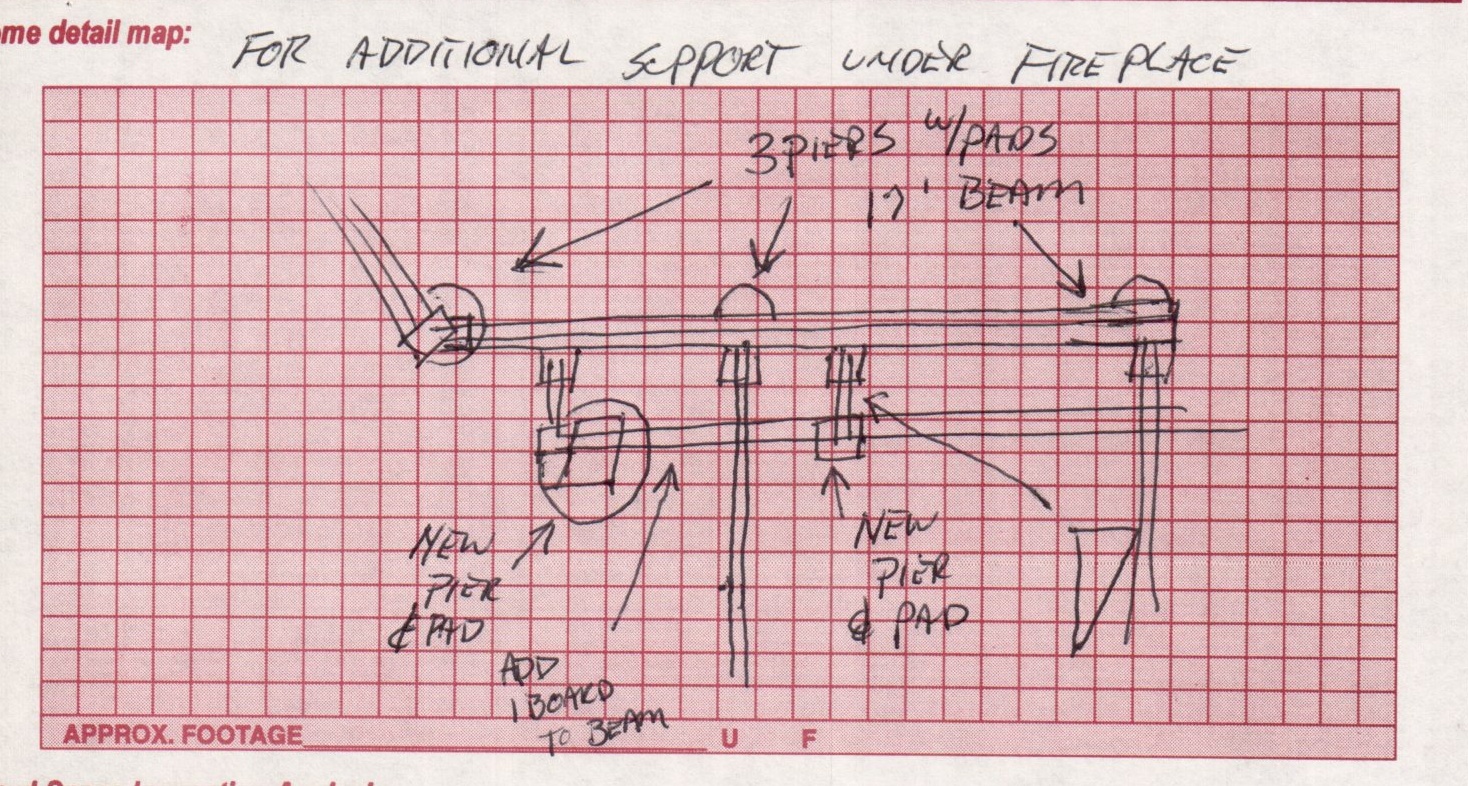 me detail map:
FOR ADDITIONAL SUPPORT UNDER FIREPLACE
3 PIERS W/PADS
17' BEAM
NEW
PIER
& PAD
NEW
PIER
& PAD
ADD
1 BOARD
TO BEAM
APPROX. FOOTAGE U F